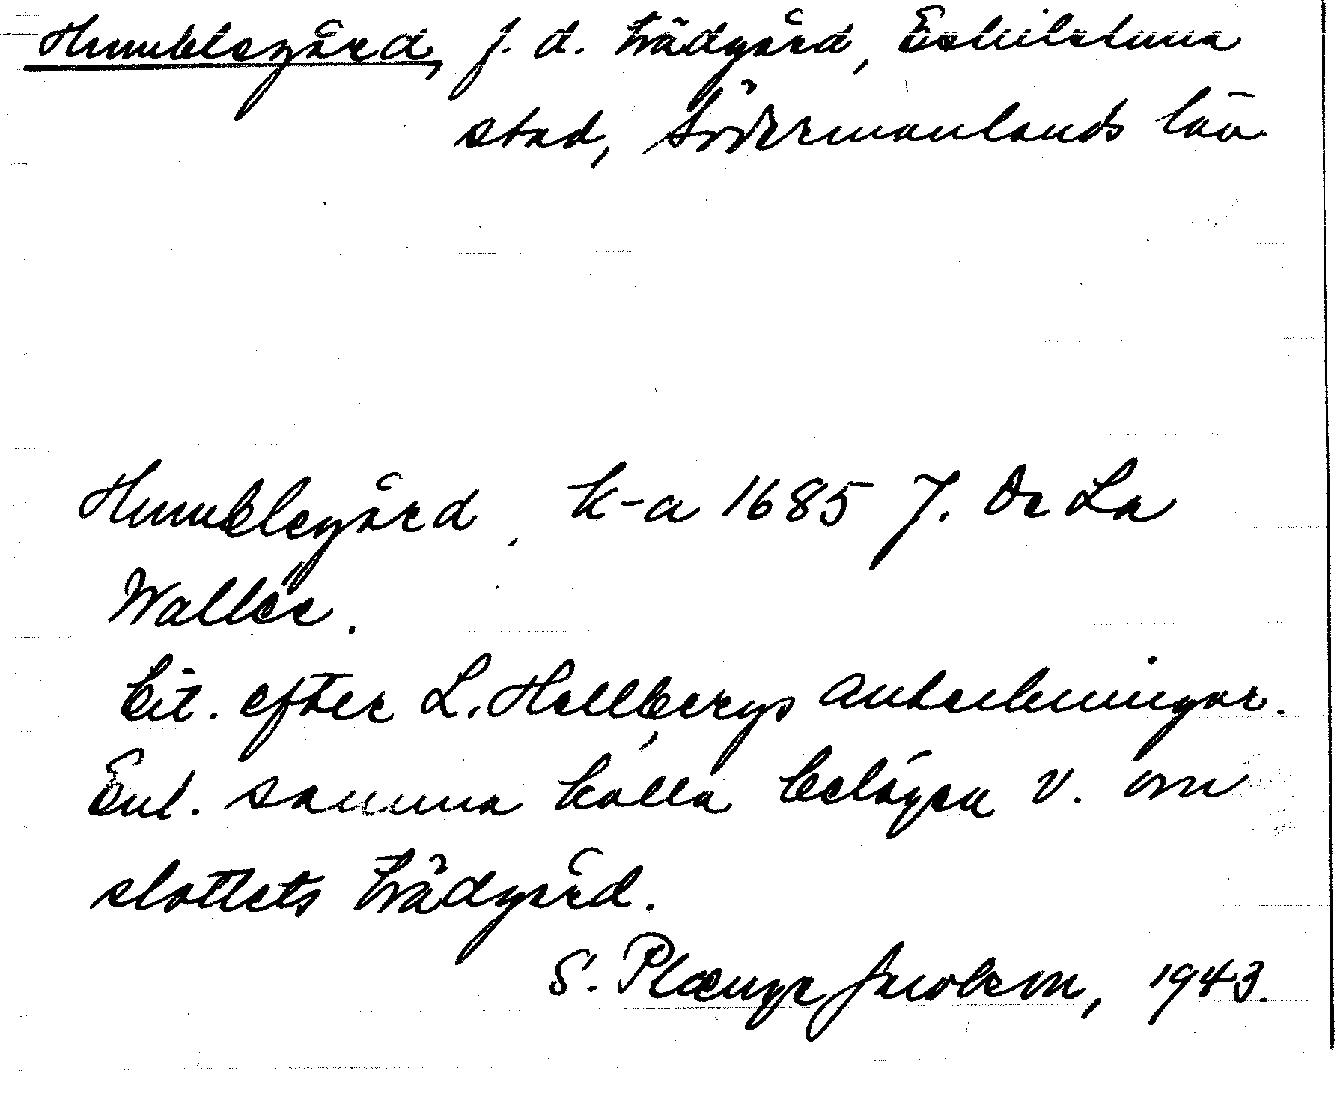 Humblegård, f. d. trädgård, Eskilstuna
stad, Södermanlands län
Humblegård. k-a 1685 J. De La
Wallée.
Cit. efter L. Hellbergs anteckningar.
Enl. samma källa belägen v. om
slottets trädgård.
S. Plænge Jacobson, 1943.